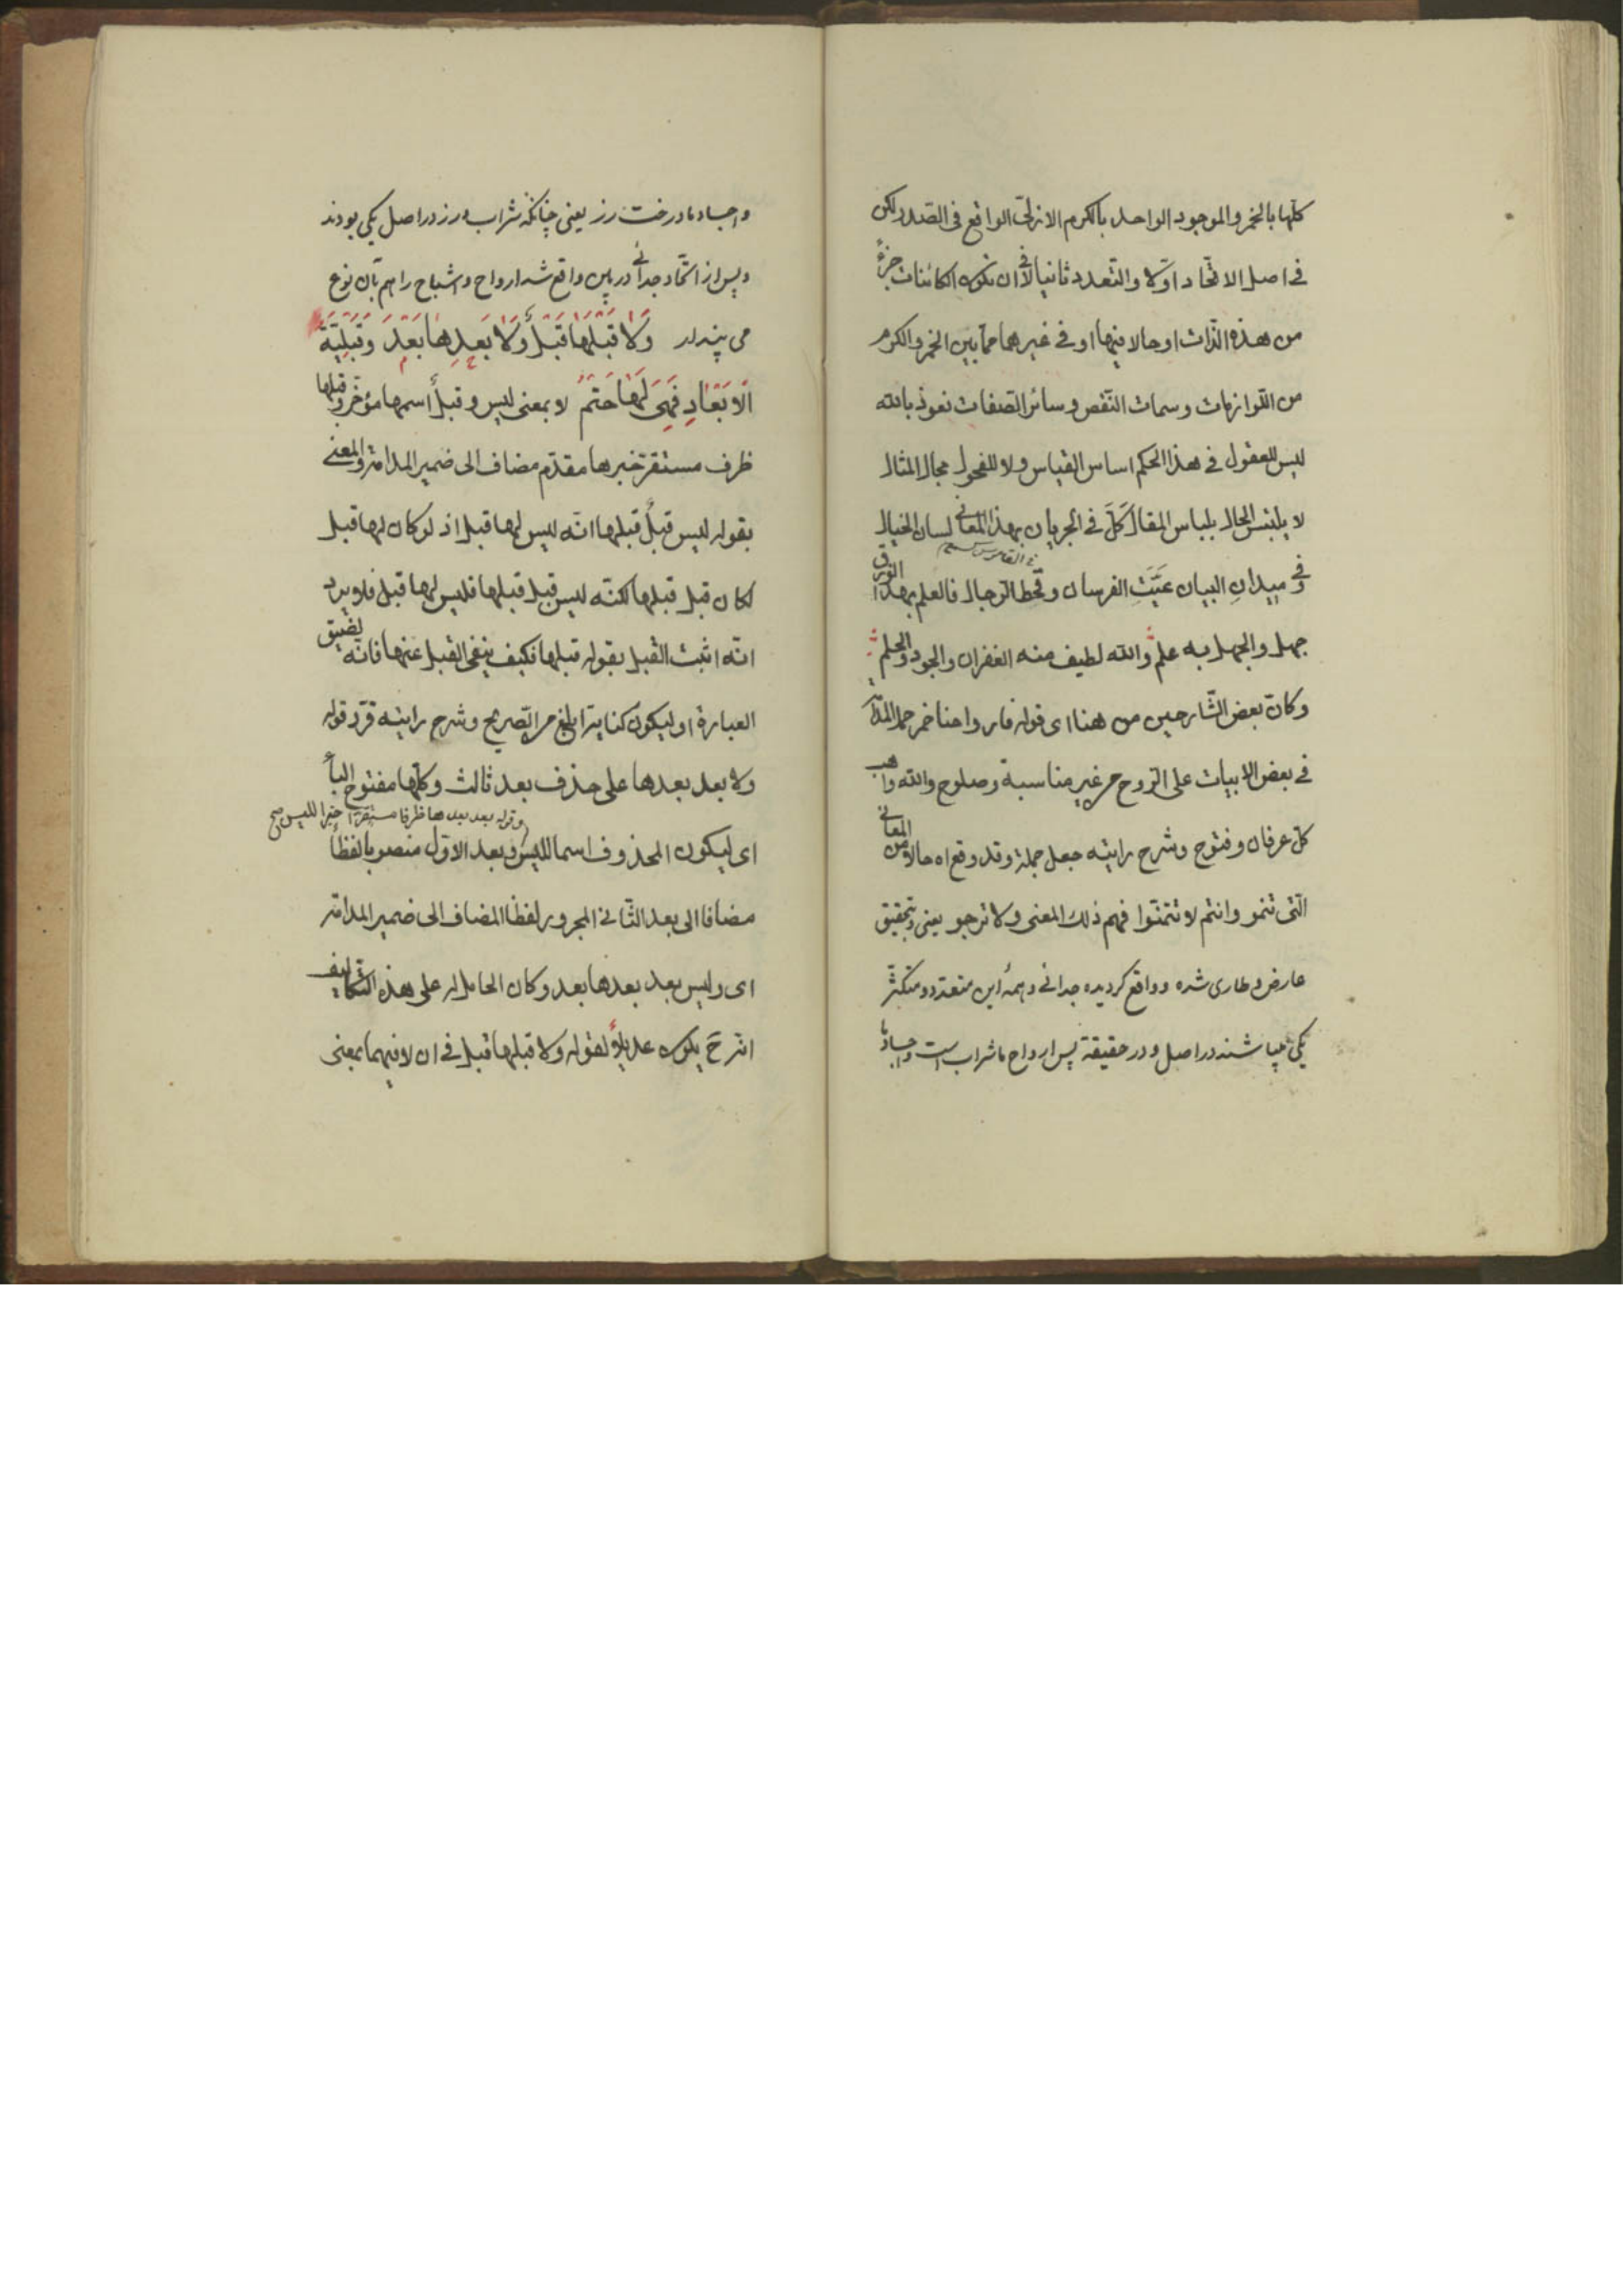 كلّها بالخمر والموجود الواحد بالكرم الازلىّ الواقع فى الصّدر لكن
فى اصل الاتّحاد اوّلا والتّعدد ثانيا لا فى ان تكون الكائنات جزءً
من هذه الذّات او حالا فيها او فى غيرهما ممّا بين الخمر والكرم
من اللّوازمات وسمات النّقص وسائر الصّفات نعوذ بالله
ليس للعقول فى هذا الحكم اساس القياس ولا للفحول مجال المثال
لا يلبس الحال بلباس المقال كَلَّ فى الجريان بهذا المعانى لسان الخيال
وفى ميدانِ البيان عَيَّتِ الفرسان وقحط الرّجال فالعلم بهذا الذوق
جهل والجهل به علم والله لطيف منه الغفران والجود والحلم
وكانّ بعض الشّارحين من هنا اى قوله فارواحنا خمر حمل المدامة
فى بعض الابيات على الرّوح من غير مناسبة وصلوح والله واهب
كلّ عرفان وفتوح وشرح رابته جعل جملة وقد وقع اه حالا من المعانى
الّتى تنمو وانتم لا تتمنّوا فهم ذلك المعنى ولا ترجو يعنى وبتحقيق
عارض وطارى شده وواقع كرديده جدائى وهمهٔ اين متعدّد ومتكثّر
يكى ميباشند در اصل ودر حقيقة پس ارواح ما شراب است واجساد ما
واجساد ما درخت رز يعنى چنانكه شراب ورز در اصل يكى بودند
وپس از اتّحاد جدائى در پى واقع شد ارواح واشباح را هم بآن نوع
مى پندار وَلَا قَبْلَهَا قَبْلٌ وَلَا بَعْدِهَا بَعْدَ وَقَبْلِيَّةُ
الْاَبْعَادِ فَهِىَ لَهَا حَتْمُ لا بمعنى ليس وقبلٌ اسمها مؤخّر وقبلها
ظرف مستقرّ خبرها مقدّم مضاف الى ضمير المدامة والمعنى
بقوله ليس قبلٌ قبلها انّه ليس لها قبل اذ لو كان لها قبل
لكان قبل قبلها لكنّه ليس قبل قبلها فليس لها قبل فلا يرد
انّه اثبت القبل بقوله قبلها فكيف ينفى القبل عنها فانّه لضيق
العبارة او ليكون كناية ابلغ من التّصريح وشرح رابته قرّر قوله
ولا بعد بعدها على حذف بعد ثالث وكلّها مفتوح البأ
وقوله بعد بعدها ظرفا مستقرّا خبرا لليس صح
اى ليكون المحذوف اسما لليس وبعد الاوّل منصوبا لفظًا
مضافا الى بعد الثّانى المجرور لفظا المضاف الى ضمير المدامة
اى وليس بعد بعدها بعد وكان الحامل له على هذه التّكاليف
انّه ح يكون عديلاً لقوله ولا قبلها قبل فى ان لا فيهما بمعنى